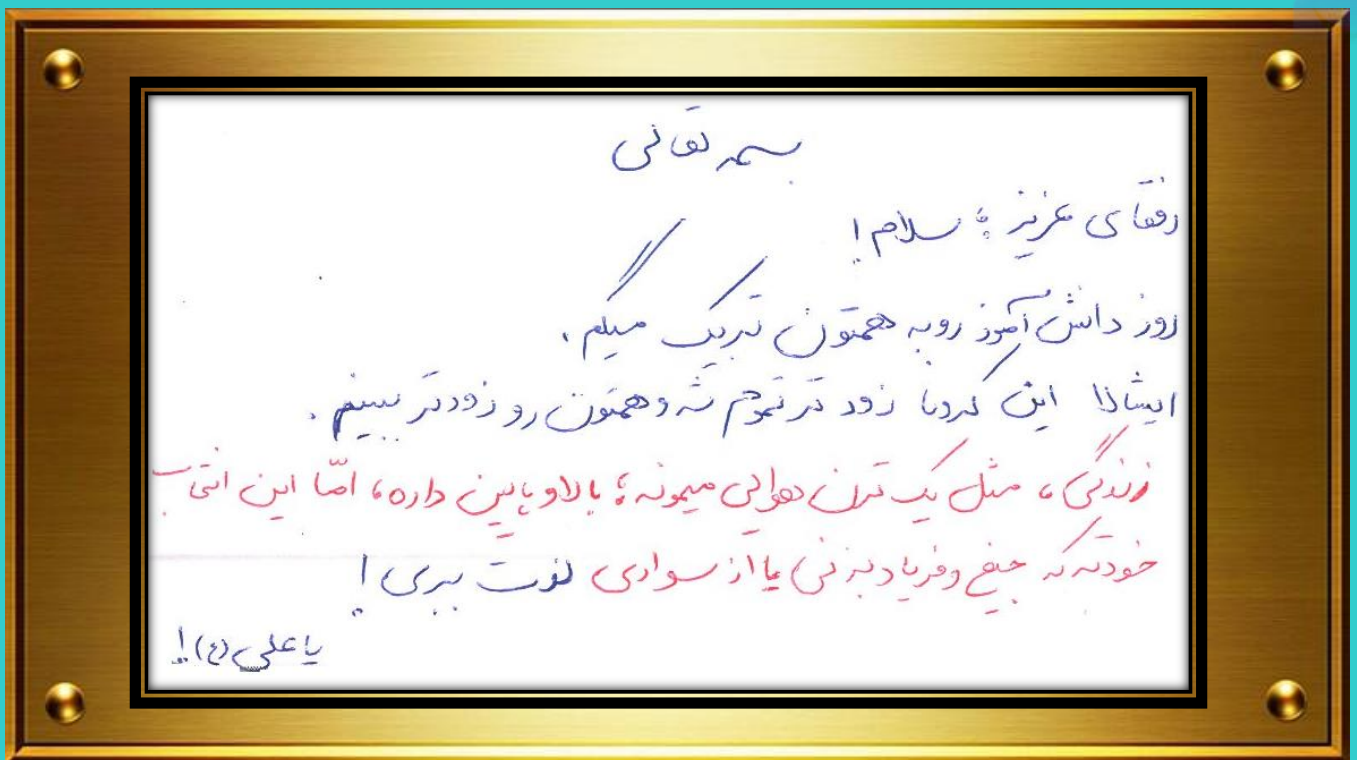 بسمه تعالی
رفقای عزیز؛ سلام!
روز دانش‌آموز رو به همتون تبریک میگم.
ایشالا این کرونا زودتر تموم شه و همتون رو زودتر ببینم.
زندگی، مثل یک ترن هوایی میمونه؛ بالا و پایین داره، امّا این انتخاب
خودته که جیغ و فریاد بزنی یا از سواری لذت ببری!
یا علی(ع)!